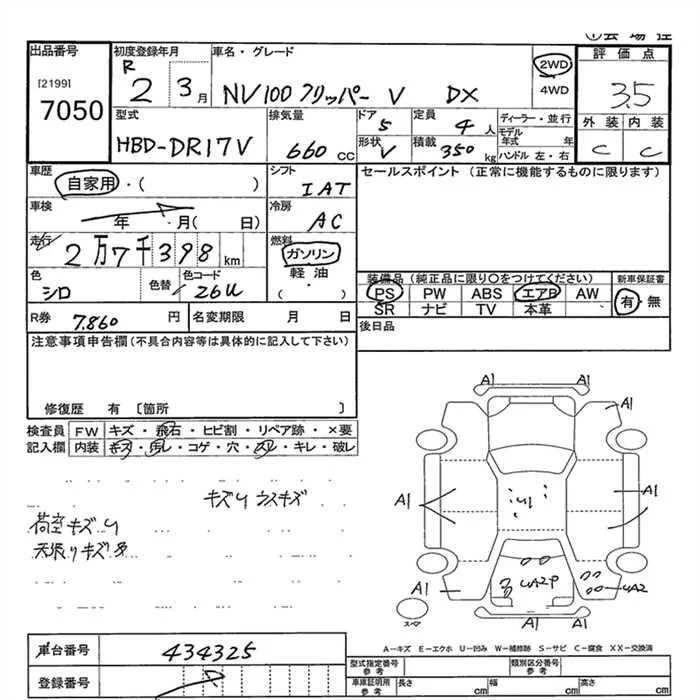 出品番号
[2199]
7050
初度登録年月
R 2 3月
車名・グレード
NV100クリッパー V DX
2WD
4WD
評価点
3.5
外装 内装
C C
型式
HBD-DR17V
排気量
660 CC
ドア
5
形状
V
定員
4人
積載
350 kg
ディーラー・並行
モデル年式 年
ハンドル 左・右
車歴
自家用・( )
シフト
IAT
車検
年 月( 日)
冷房
AC
走行
2万7千398 km
燃料
ガソリン
軽油
( ・ )
色
シロ
色替
色コード
26U
R券 7.860 円
名変期限 月 日
セールスポイント (正常に機能するものに限ります)
装備品(純正品に限り○をつけてください)
PS PW ABS エアB AW
SR ナビ TV 本革
新車保証書
有・無
後日品
注意事項申告欄(不具合内容等は具体的に記入して下さい)
修復歴 有 〔箇所 〕
検査員記入欄
FW キズ・飛石・ヒビ割・リペア跡・×要
内装 キズ・汚レ・コゲ・穴・スレ・キレ・破レ
キズU ウスキズ
荷室キズU
天張りキズ多
A1
A1
A1
A1
A1
U1
A1
UA2P
UA2
A1
A1
スペア
車台番号
434325
登録番号
A-キズ E-エクボ U-凹み W-補修跡 S-サビ C-腐食 XX-交換済
型式指定番号
参考
類別区分番号
参考
車庫証明用
参考
長さ cm
幅 cm
高さ cm